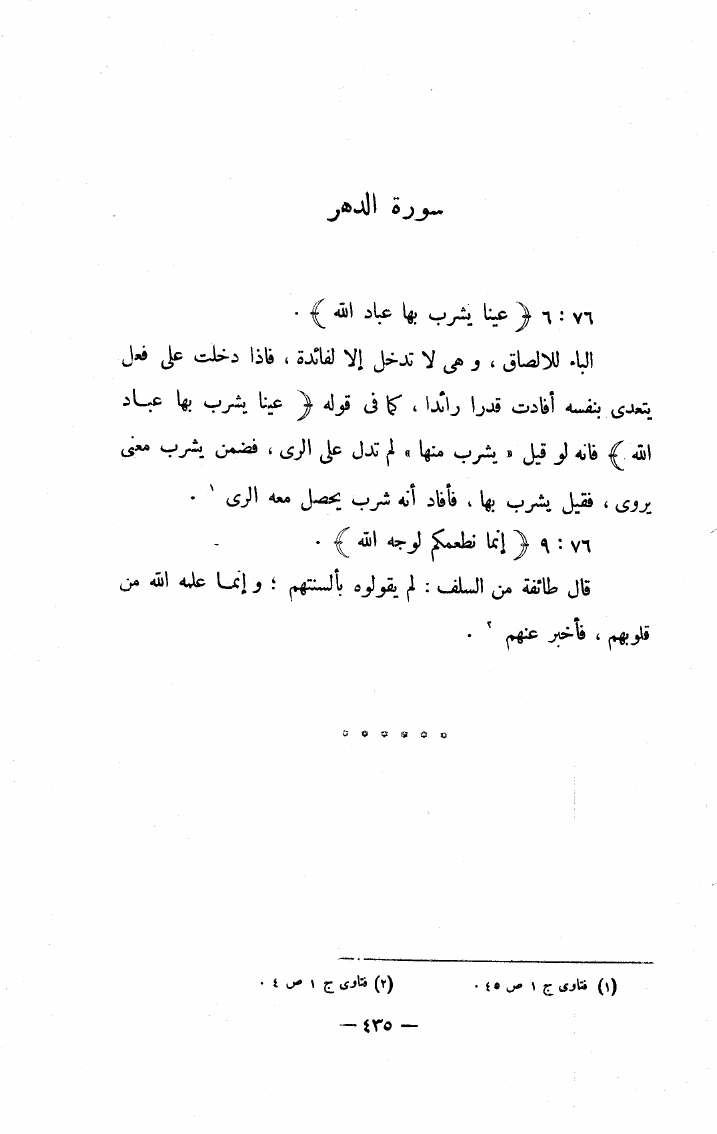 سورة الدهر
٧٦ : ٦ ﴿ عينا يشرب بها عباد الله ﴾ .
الباء للالصاق ، و هى لا تدخل إلا لفائدة ، فاذا دخلت على فعل
يتعدى بنفسه أفادت قدرا زائدا ، كما فى قوله ﴿ عينا يشرب بها عباد
الله ﴾ فانه لو قيل « يشرب منها » لم تدل على الرى ، فضمن يشرب معنى
يروى ، فقيل يشرب بها ، فأفاد أنه شرب يحصل معه الرى ١ .
٧٦ : ٩ ﴿ إنما نطعمكم لوجه الله ﴾ .
قال طائفة من السلف : لم يقولوه بألسنتهم ؛ و إنما علمه الله من
قلوبهم ، فأخبر عنهم ٢ .
* * * * * *
(١) فتاوى ج ١ ص ٤٥ . (٢) فتاوى ج ١ ص ٤ .
— ٤٣٥ —